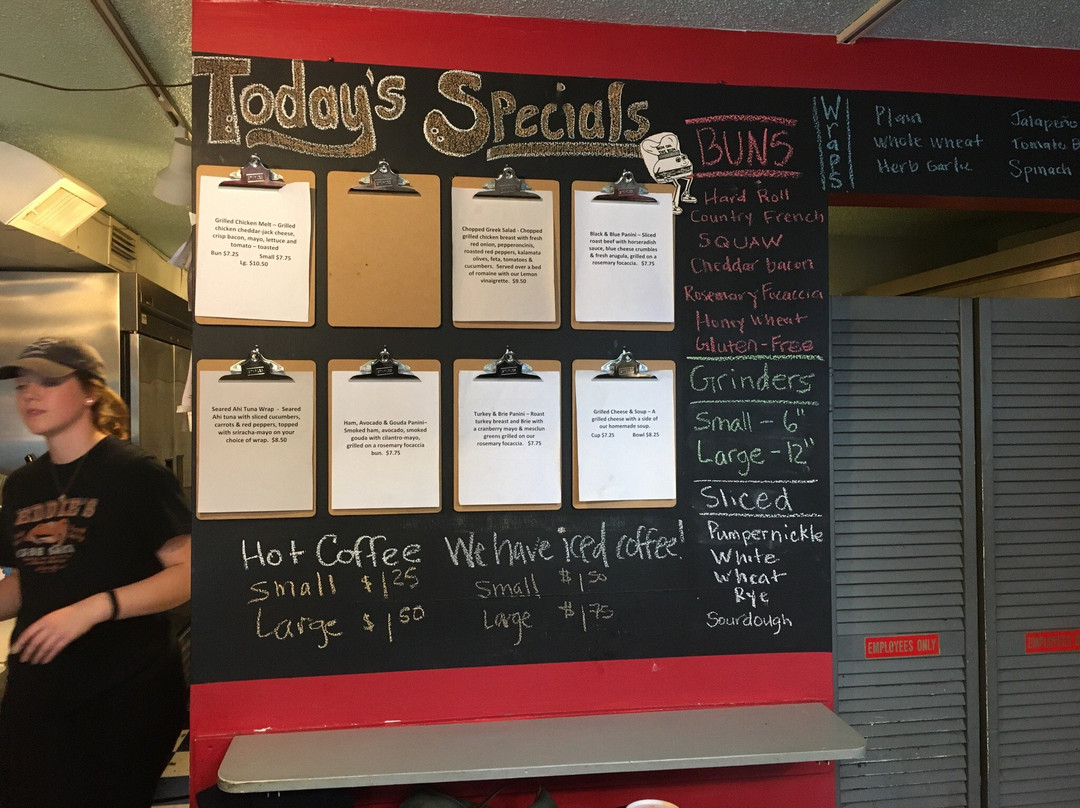 Today's Specials
Grilled Chicken Melt – Grilled
chicken cheddar-jack cheese,
crisp bacon, mayo, lettuce and
tomato – toasted
Bun $7.25 Small $7.75
Lg. $10.50
Chopped Greek Salad - Chopped
grilled chicken breast with fresh
red onion, pepperoncinis,
roasted red peppers, kalamata
olives, feta, tomatoes &
cucumbers. Served over a bed
of romaine with our Lemon
vinaigrette. $9.50
Black & Blue Panini – Sliced
roast beef with horseradish
sauce, blue cheese crumbles
& fresh arugula, grilled on a
rosemary focaccia. $7.75
Seared Ahi Tuna Wrap - Seared
Ahi tuna with sliced cucumbers,
carrots & red peppers, topped
with sriracha-mayo on your
choice of wrap. $8.50
Ham, Avocado & Gouda Panini–
Smoked ham, avocado, smoked
gouda with cilantro-mayo,
grilled on a rosemary focaccia
bun. $7.75
Turkey & Brie Panini – Roast
turkey breast and Brie with
a cranberry mayo & mesclun
greens grilled on our
rosemary focaccia. $7.75
Grilled Cheese & Soup – A
grilled cheese with a side of
our homemade soup.
Cup $7.25 Bowl $8.25
Hot Coffee
Small $1 25
Large $1 50
We have iced coffee!
Small $1 50
Large $1 75
BUNS
Hard Roll
Country French
SQUAW
Cheddar bacon
Rosemary Focaccia
Honey Wheat
Gluten-Free
Grinders
Small - 6"
Large - 12"
Sliced
Pumpernickle
White
Wheat
Rye
Sourdough
Wraps
Plain
Whole Wheat
Herb Garlic
Jalapeño
Tomato
Spinach
EMPLOYEES ONLY
EMPLOYEES
EDDIE'S